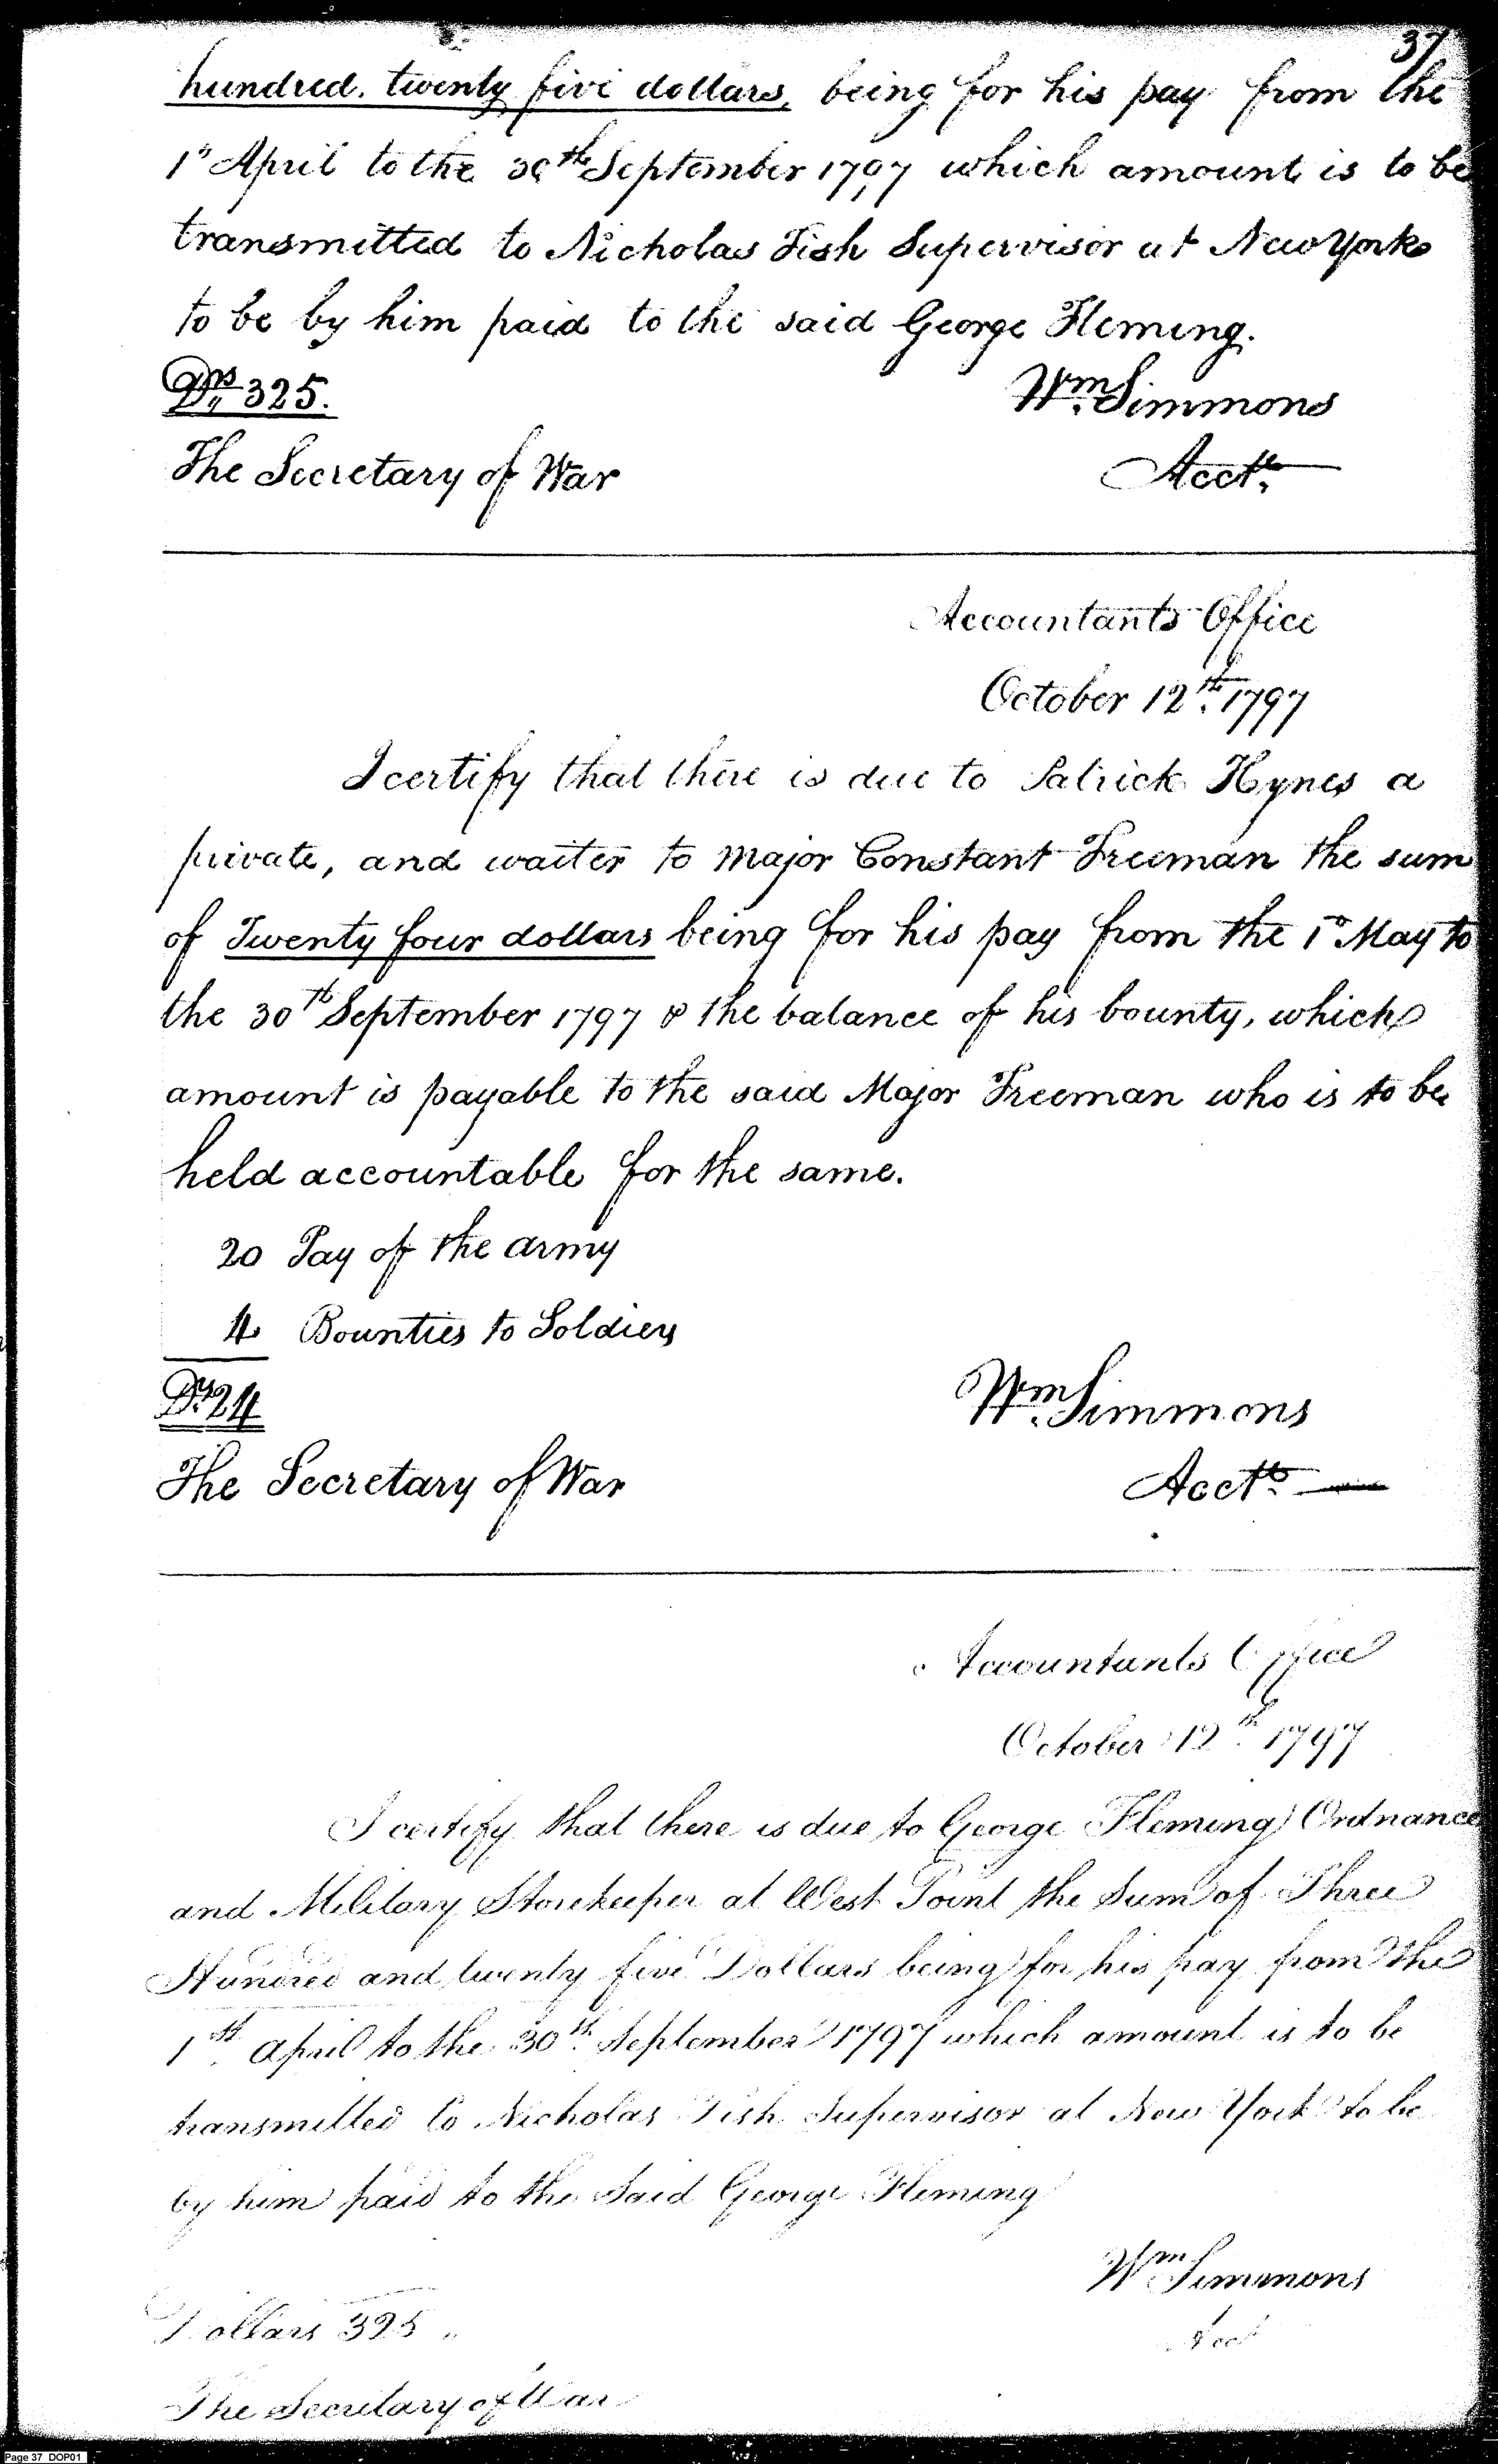 37
hundred. twenty five dollars, being for his pay from the
1st April to the 30th September 1797 which amount is to be
transmitted to Nicholas Fish Supervisor at New York
to be by him paid to the said George Fleming.
Drs 325.
Wm Simmons
The Secretary of War
Acctt.
Accountants Office
October 12th. 1797
I certify that there is due to Patrick Hynes a
private, and waiter to Major Constant Freeman the sum
of Twenty four dollars being for his pay from the 1st May to
the 30th September 1797 & the balance of his bounty, which
amount is payable to the said Major Freeman who is to be
held accountable for the same.
20 Pay of the army
4 Bounties to Soldiers
Drs 24
Wm. Simmons
The Secretary of War
Acctt.
Accountants Office
October 12th. 1797
I certify that there is due to George Fleming Ordnance
and Military Storekeeper at West Point the Sum of Three
Hundred and twenty five Dollars being for his pay from the
1st. April to the 30th. September 1797 which amount is to be
transmitted to Nicholas Fish Supervisor at New York to be
by him paid to the Said George Fleming
Wm Simmons
Dollars 325 "
Acct
The Secretary of War
Page 37 DOP01